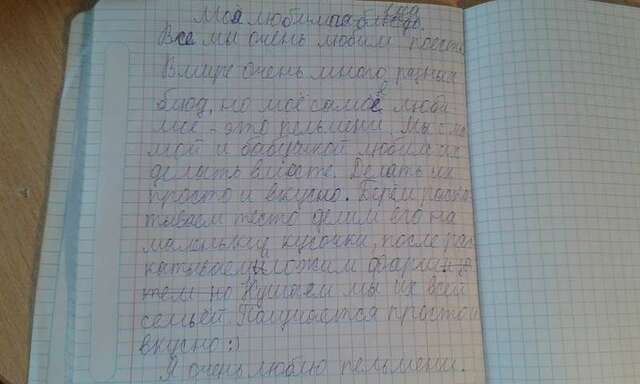 Моя любимая блюдо.
Все мы очень любим поесть
В мире очень много разных
блюд, но моё самое люби
мое - это пельмени. Мы с ма
мой и бабушкой любим их
делать вместе. Делать их
просто и вкусно. Берём раска
тываем тесто делим его на
маленькие кусочки, после рас
катываем и ложим фарш
но Кушаем мы их всей
семьёй. Получается просто и
вкусно :)
Я очень люблю пельмени.